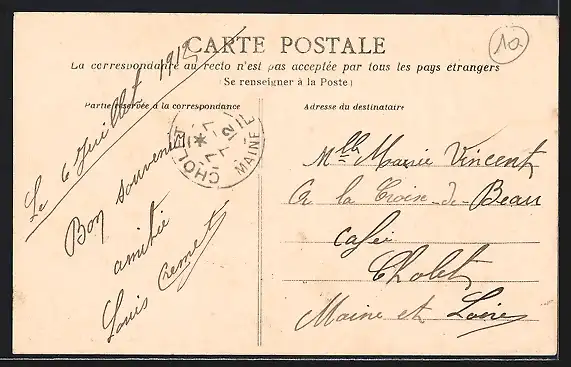 CARTE POSTALE
La correspondance au recto n'est pas acceptée par tous les pays étrangers
(Se renseigner à la Poste)
Partie réservée à la correspondance
Adresse du destinataire
10
Le 6 Juillet 1912
Bon souvenir
amitié
Louis Cremet
CHOLET
MAINE
Mlle Marie Vincent
A la Croix-de-Beau
Cholet
Maine et Loire